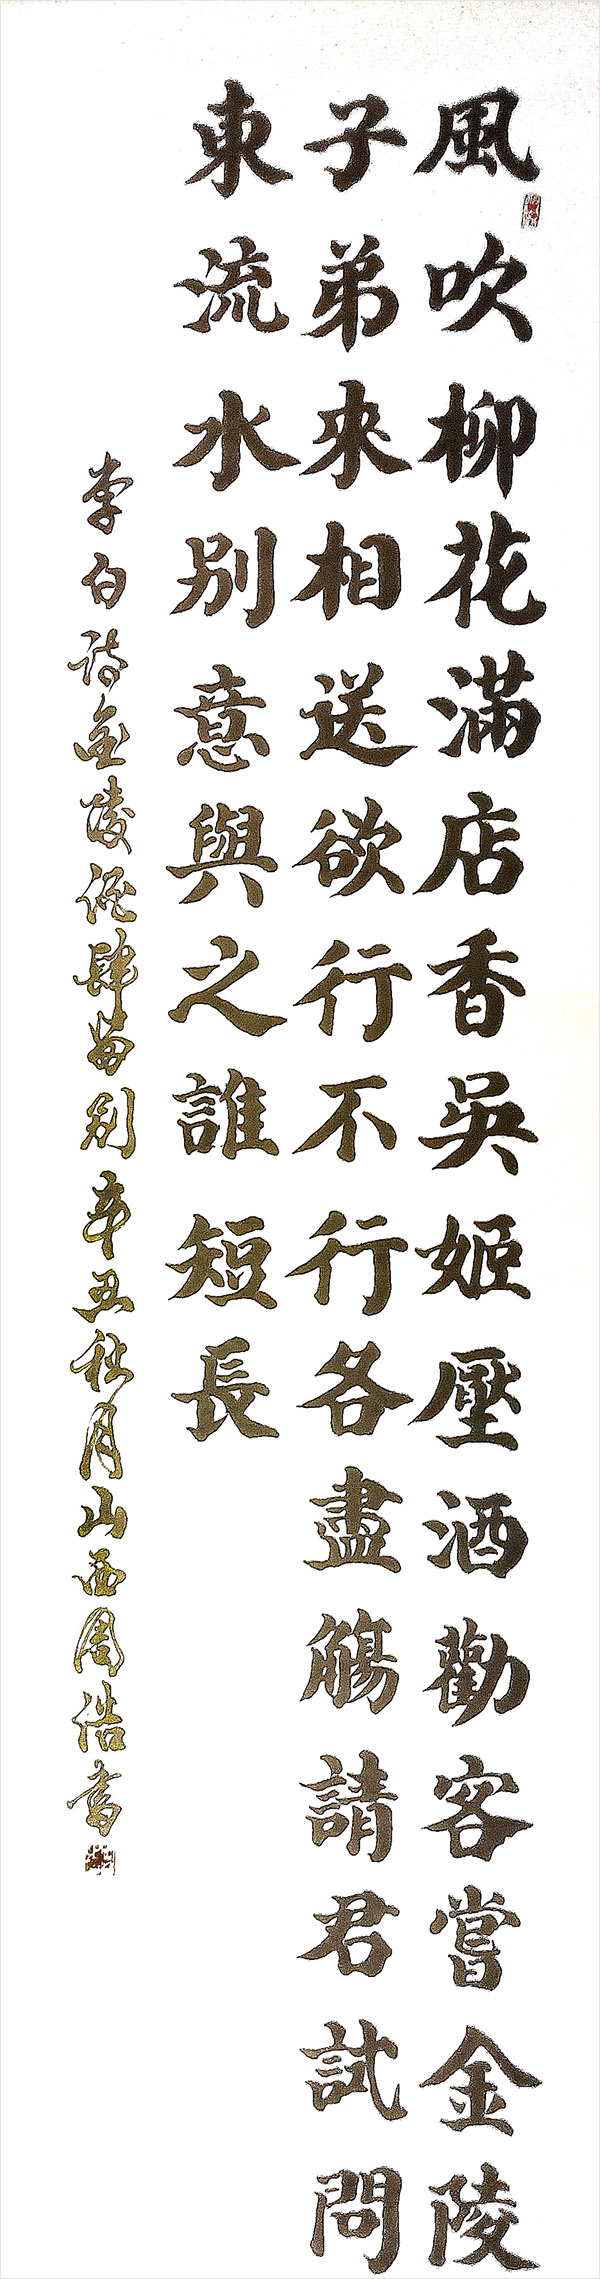 風吹柳花滿店香吳姬壓酒勸客嘗金陵
子弟來相送欲行不行各盡觴請君試問
東流水別意與之誰短長
李白诗金陵酒肆留别辛丑秋月山西周浩书